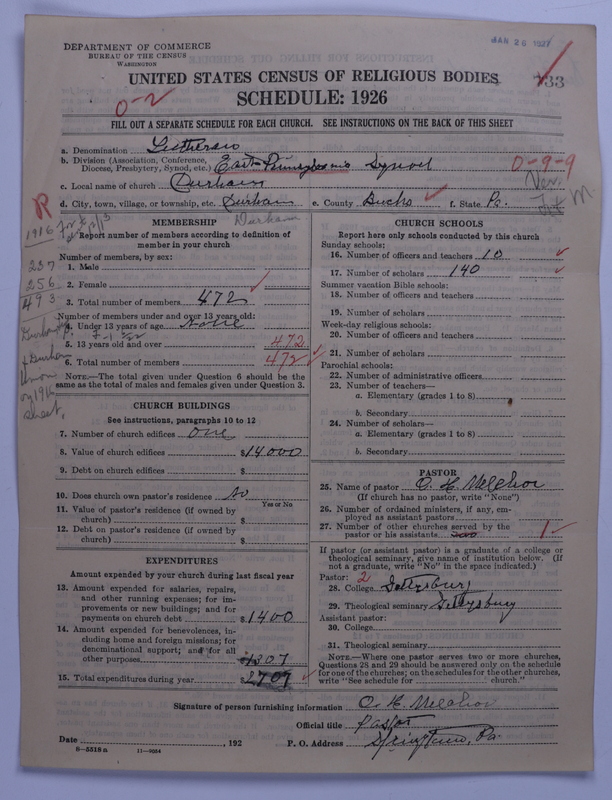 JAN 26 1927
DEPARTMENT OF COMMERCE
BUREAU OF THE CENSUS
WASHINGTON
UNITED STATES CENSUS OF RELIGIOUS BODIES
SCHEDULE: 1926
733
0-2
FILL OUT A SEPARATE SCHEDULE FOR EACH CHURCH. SEE INSTRUCTIONS ON THE BACK OF THIS SHEET
a. Denomination Lutheran
b. Division (Association, Conference, Diocese, Presbytery, Synod, etc.) East Pennsylvania Synod
0-9-9
c. Local name of church Durham
d. City, town, village, or township, etc. Durham e. County Bucks f. State Pa.
Durham
R
1916
237
256
493
Durham
& Durham
Union
on 1916
sheet.
MEMBERSHIP
Report number of members according to definition of
member in your church
Number of members, by sex:
1. Male
2. Female
3. Total number of members 472
Number of members under and over 13 years old:
4. Under 13 years of age None
5. 13 years old and over 472
6. Total number of members 472
NOTE.—The total given under Question 6 should be the
same as the total of males and females given under Question 3.
CHURCH BUILDINGS
See instructions, paragraphs 10 to 12
7. Number of church edifices One
8. Value of church edifices $14000
9. Debt on church edifices $
10. Does church own pastor's residence No
Yes or No
11. Value of pastor's residence (if owned by
church) $
12. Debt on pastor's residence (if owned by
church) $
EXPENDITURES
Amount expended by your church during last fiscal year
13. Amount expended for salaries, repairs,
and other running expenses; for im-
provements or new buildings; and for
payments on church debt $1400
14. Amount expended for benevolences, in-
cluding home and foreign missions; for
denominational support; and for all
other purposes 1307
15. Total expenditures during year $2707
CHURCH SCHOOLS
Report here only schools conducted by this church
Sunday schools:
16. Number of officers and teachers 10
17. Number of scholars 140
Summer vacation Bible schools:
18. Number of officers and teachers
19. Number of scholars
Week-day religious schools:
20. Number of officers and teachers
21. Number of scholars
Parochial schools:
22. Number of administrative officers
23. Number of teachers—
a. Elementary (grades 1 to 8)
b. Secondary
24. Number of scholars—
a. Elementary (grades 1 to 8)
b. Secondary
PASTOR
25. Name of pastor O. H. Melchor
(If church has no pastor, write "None")
26. Number of ordained ministers, if any, em-
ployed as assistant pastors
27. Number of other churches served by the
pastor or his assistants 1
If pastor (or assistant pastor) is a graduate of a college or
theological seminary, give name of institution below. (If
not a graduate, write "No" in the space indicated.)
Pastor: 2
28. College Gettysburg
29. Theological seminary Gettysburg
Assistant pastor:
30. College
31. Theological seminary
NOTE.—Where one pastor serves two or more churches,
Questions 28 and 29 should be answered only on the schedule
for one of the churches; on the schedules for the other churches,
write "See schedule for church."
Signature of person furnishing information O. H. Melchor
Official title Pastor
Date , 192 P. O. Address Springtown, Pa.
8-5518 a 11-9064